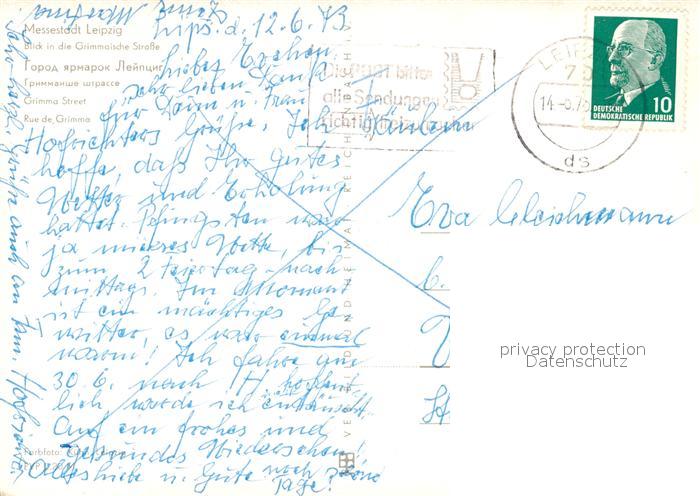 Messestadt Leipzig
Blick in die Grimmaische Straße
Город ярмарок Лейпциг
Гриммаише штрассе
Grimma Street
Rue de Grimma
d. 12.6.73
Liebes Evchen,
lieben Dank
für Deine u. Frau
Hofrichters Grüße. Ich
hoffe, daß Ihr gutes
Wetter und Erholung
hattet. Pfingsten war
ja mieses Wetter, bis
zum 2. Feiertag-nach
mittags. Im Moment
ist ein mächtiges Ge
witter, es war einmal
warm! Ich fahre am
30.6. nach H, hoffent
lich werde ich enttäuscht.
Auf ein frohes und
gesundes Wiedersehen!
Alles Liebe u. Gute noch schöne
Tage!
Grüße auch an Fam. Hofrichter
bitte
alle Sendungen
richtig
LEIPZIG
70
14.-6.73
ds
DEUTSCHE
DEMOKRATISCHE REPUBLIK
10
Fräulein
Eva Gleichmann
privacy protection
Datenschutz